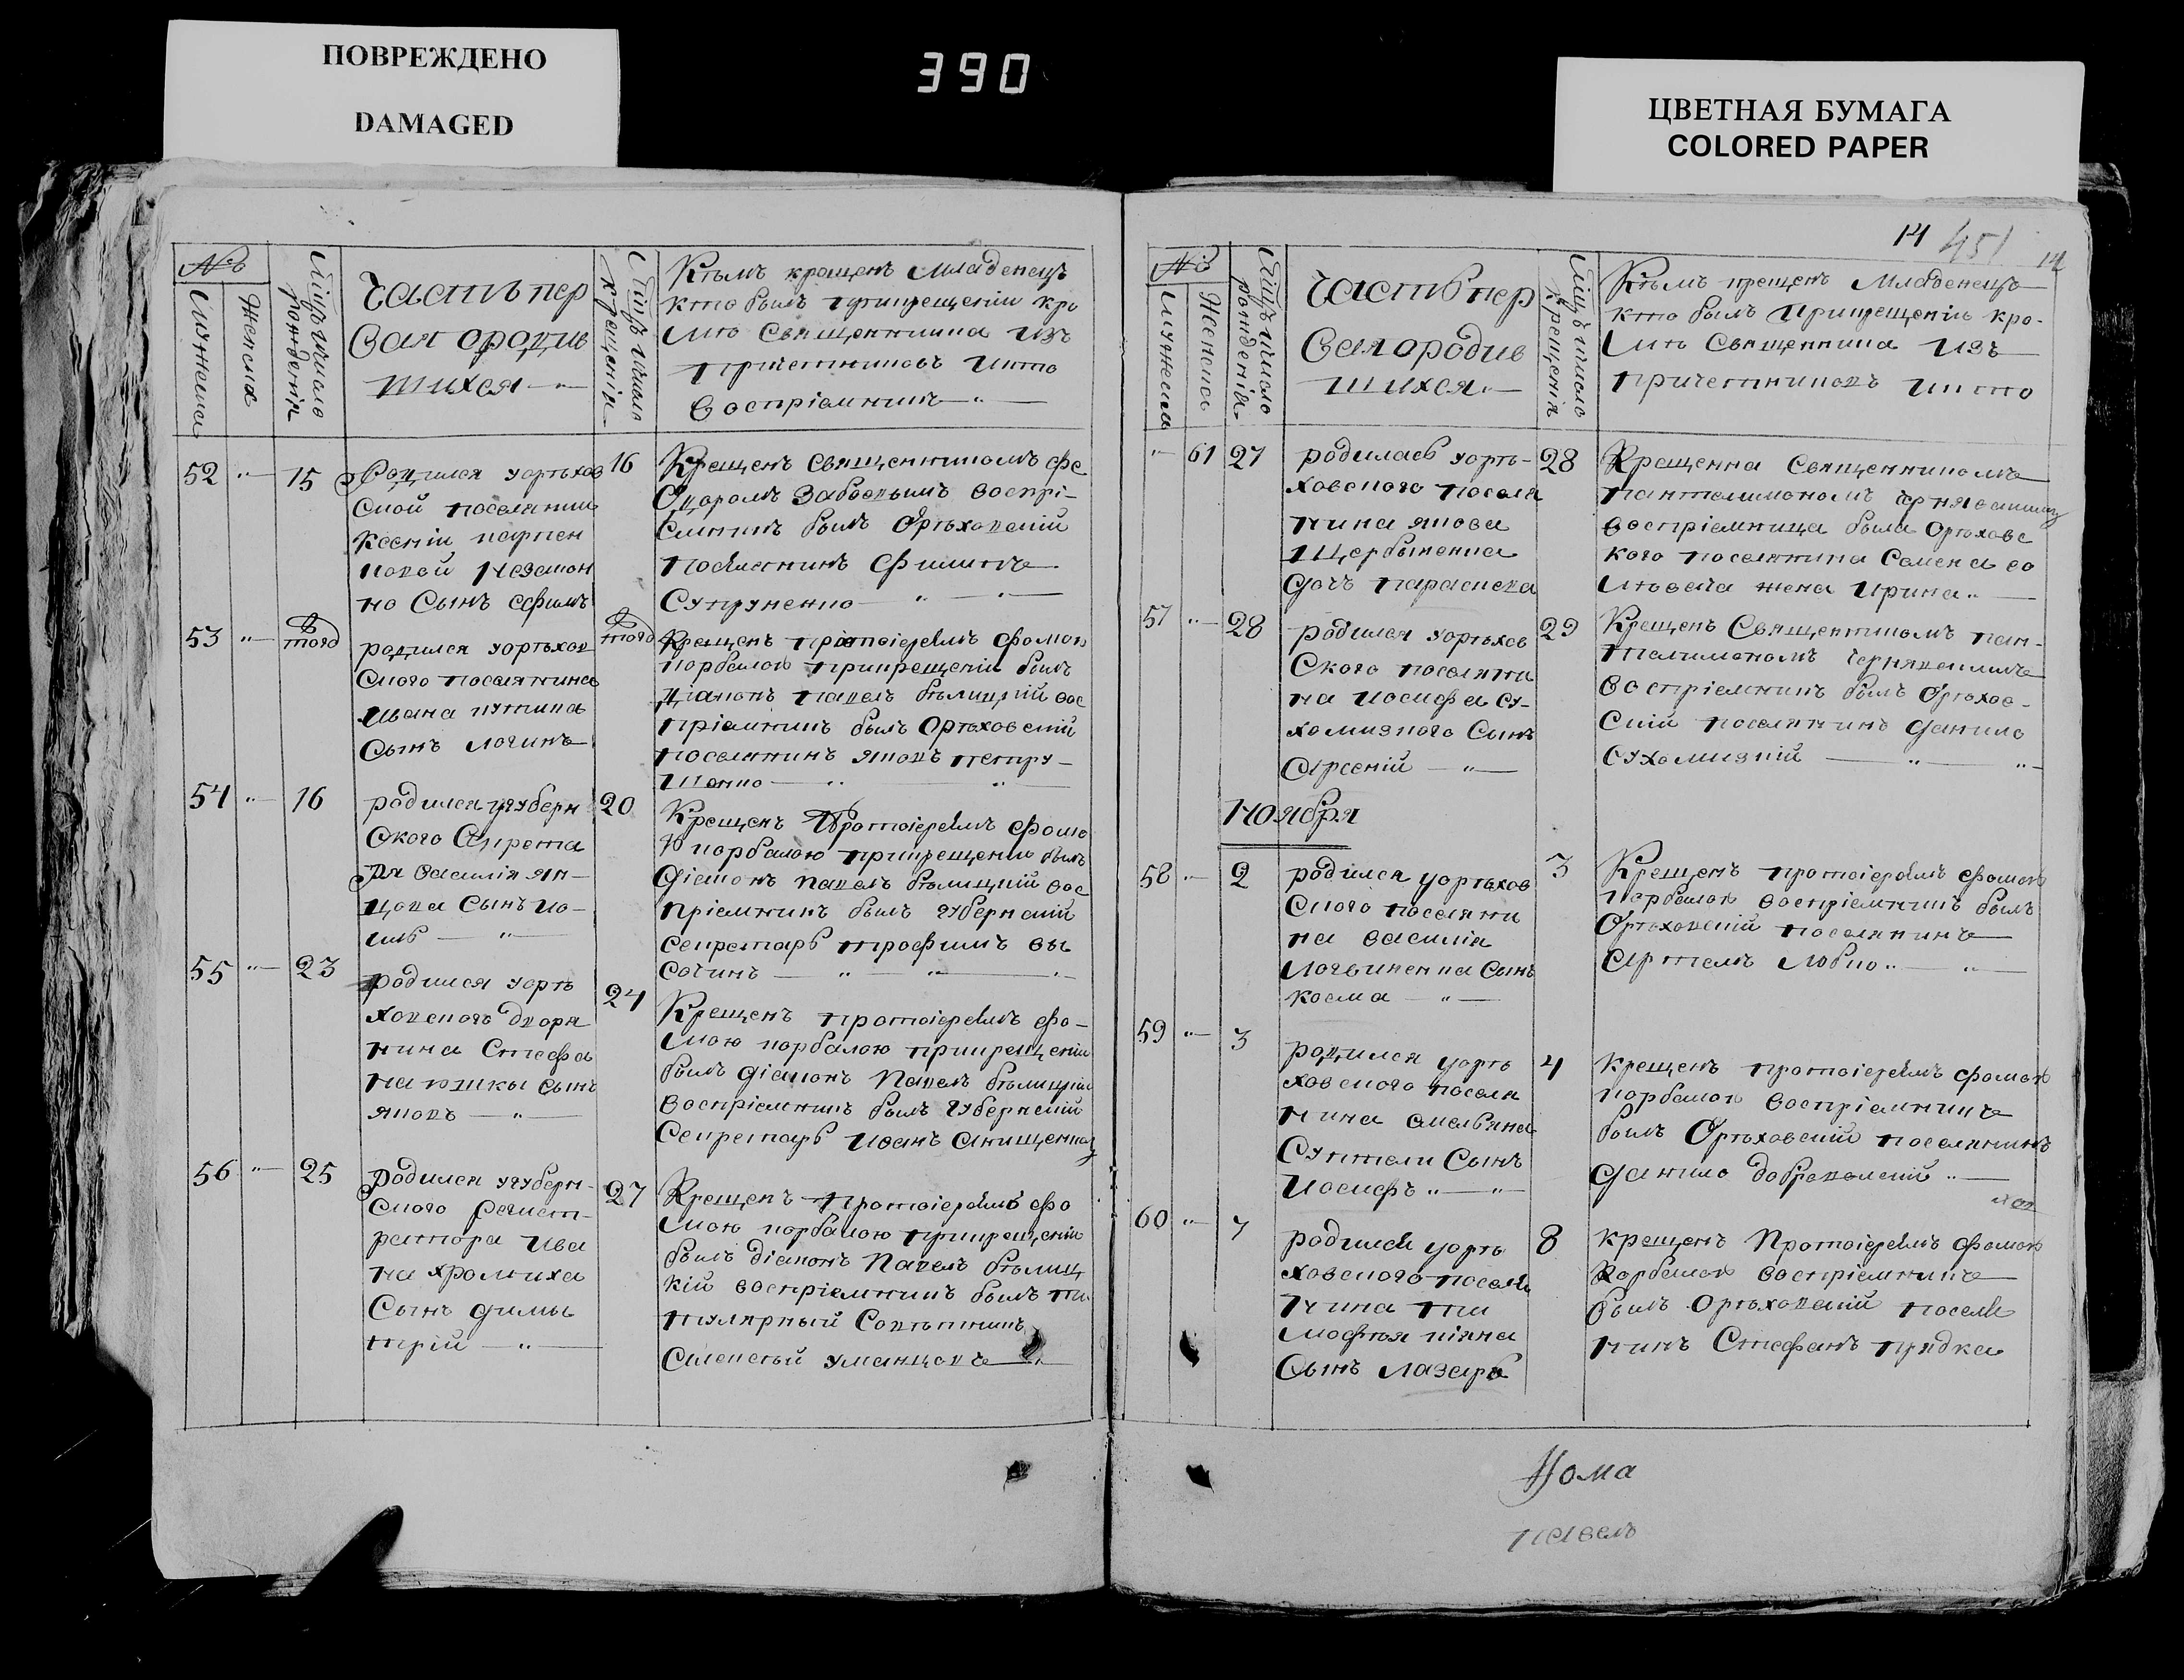 ПОВРЕЖДЕНО
DAMAGED
390
ЦВЕТНАЯ БУМАГА
COLORED PAPER
14 451
№
Мужеска
Женска
Мцъ число рожденія
Часть пер
вая ородив
шихся
Мцъ число крещенія
Кѣмъ крещенъ младенецъ
кто былъ прикрещеніи кро
мѣ Священника изъ
причетниковъ икто
воспріемникъ
52 15
Родился уорѣхов
ской поселянки
Ксеніи
но Сынъ Ефимъ
16
Крещенъ Священникомъ Фе
одоромъ воспрі
емникъ былъ Орѣховскій
поселянинъ Филипъ
Супруненко
53 того
родился уорѣхов
ского поселянина
Ивана
Сынъ Логинъ
того
Крещенъ протоіереемъ Фомою
корбалою прикрещеніи былъ
діаконъ павелъ бѣлицкій вос
пріемникъ былъ Орѣховскій
поселянинъ яковъ петру
шенко
54 16
родился угуберн
ского Секрета
ря василія ян
цова Сынъ Ио
иль
20
Крещенъ Протоіереемъ Фомо
ю корбалою прикрещеніи былъ
діаконъ павелъ бѣлицкій вос
пріемникъ былъ губернскій
секретарь трофимъ вы
социнъ
55 23
родился уорѣ
ховскогъ дворя
нина Стефа
на Сынъ
яковъ
24
Крещенъ протоіереемъ фо
мою корбалою прикрещеніи
былъ діаконъ Павелъ бѣлицкій
воспріемникъ былъ губернскій
Секретарь иванъ Онищенко
56 25
родился угуберн
ского регист
ратора ива
на
Сынъ дими
трій
27
Крещенъ Протоіереемъ фо
мою корбалою прикрещеніи
былъ діаконъ Павелъ бѣлиц
кій воспріемникъ былъ ти
тулярный Совѣтникъ
Алексѣй уманцовъ
№
Мужеска
Женска
Мцъ число рожденія
Часть пер
вая ородив
шихся
Мцъ число крещенія
Кѣмъ крещенъ младенецъ
кто былъ прикрещеніи кро
мѣ Священника изъ
причетниковъ икто
61 27
родилась уорѣ
ховского поселя
нина якова
Щербыненка
дочь параскева
28
Крещенна Священникомъ
пантелимономъ чернявскимъ
воспріемница была Орѣховс
кого поселянина Семена
жена Ирина
57 28
родился уорѣхов
Ского поселяни
на иосифа су
хомизного Сынъ
Арсеній
29
Крещенъ Священникомъ пан
телимономъ чернявскимъ
воспріемникъ былъ Орѣхов
скій поселянинъ данило
сухомизній
Ноября
58 2
родился уорѣхов
ского поселяни
на василія
логвиненка Сынъ
косма
3
Крещенъ протоіереемъ Фомою
корбалою воспріемникъ былъ
Орѣховскій поселянинъ
Артемъ Лобко
59 3
родился уорѣ
ховского поселя
нина омельяна
Сынъ
Иосифъ
4
крещенъ протоіереемъ фомою
корбалою воспріемникъ
былъ Орѣховскій поселянинъ
данило
60 7
родился уорѣ
ховского поселя
нина ти
мофѣя піяна
Сынъ Лазарь
8
крещенъ Протоіереемъ Фомою
Корбалою воспріемникъ
былъ Орѣховскій поселя
нинъ Стефанъ прядка
Фома
павелъ